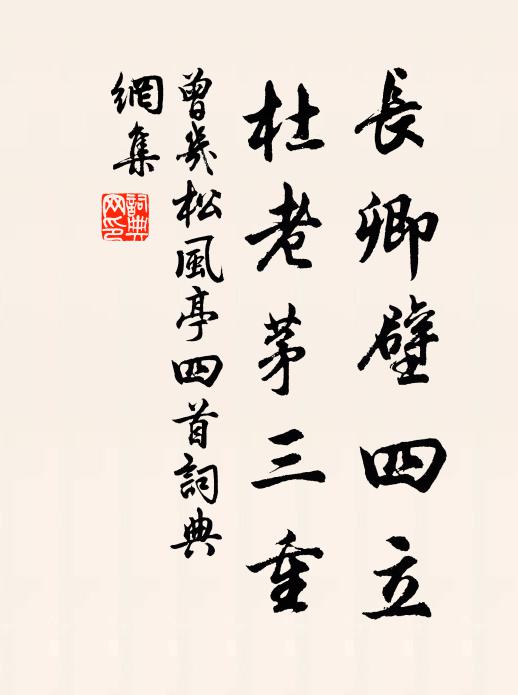 長卿壁四立
杜老茅三重
曾㡬松風亭四首詞典
網集
詞典
网印